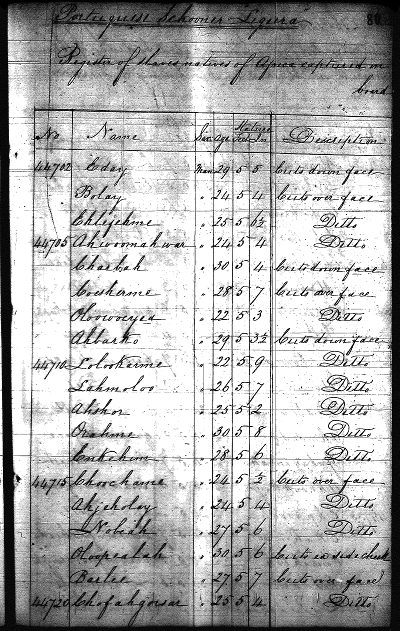 Portuguese Schooner "Liguera" 80
Register of Slaves natives of Africa captured on
board
No Name Sex Age Stature Feet In Description
44702 Eday Man 29 5 5 Cuts down face
Bolay " 24 5 4 Cuts over face
Ehlejehme " 25 5 6½ Ditto
44705 Ahwoomahwar " 24 5 4 Ditto
Chaebah " 30 5 4 Cuts down face
Coeskerme " 28 5 7 Cuts over face
Oloowoeyea " 22 5 3 Ditto
Akbarko " 29 5 3½ Cuts down face
44710 Lolookerme " 22 5 9 Ditto
Lahmoloo " 26 5 7 Ditto
Ahshor " 25 5 2 Ditto
Orahme " 30 5 8 Ditto
" 28 5 6 Ditto
44715 Choochame " 24 5 ½ Cuts over face
Ahjekoloy " 24 5 4 Ditto
Nobeah " 27 5 6 Ditto
Oloopealah " 30 5 6 Cuts ea side cheek
Barlee " 27 5 7 Cuts over face
44720 Chofahgorsar " 25 5 4 Ditto